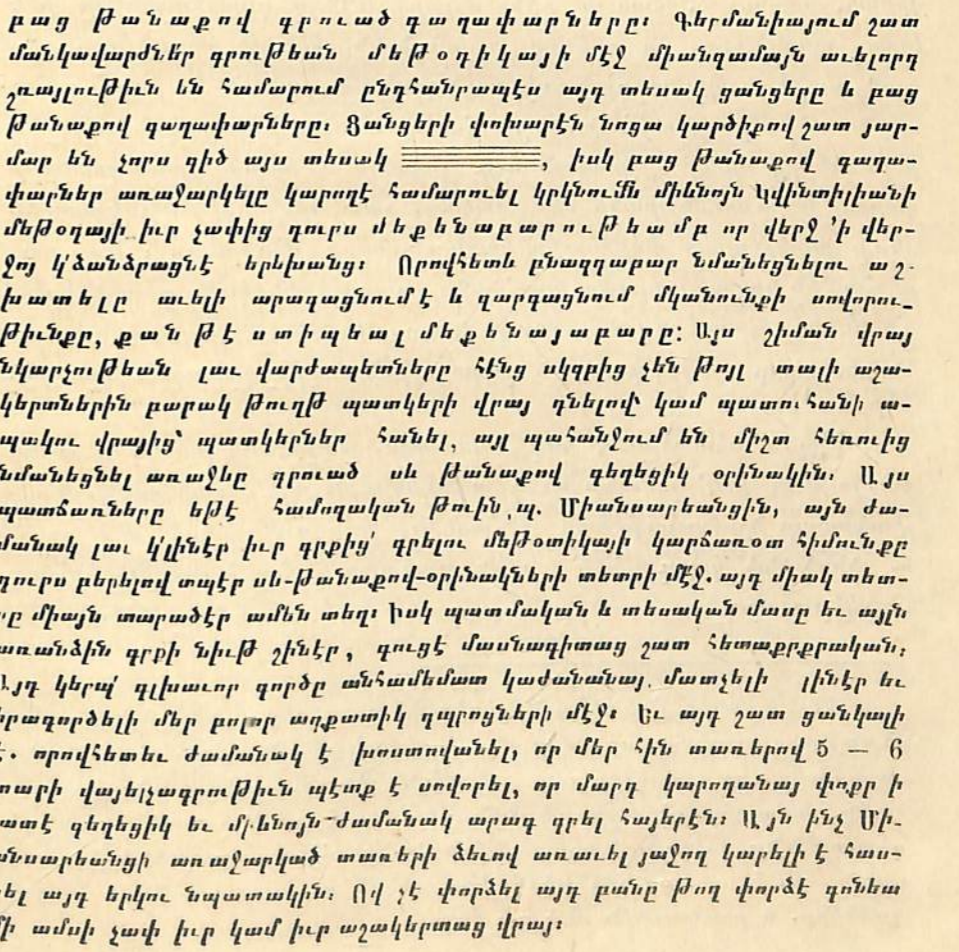 բաց թանաքով գրուած գաղափարները։ Գերմանիայում շատ
մանկավարժներ գրութեան մեթօդիկայի մէջ միանգամայն աւելորդ
շռայլութիւն են համարում ընդհանրապէս այդ տեսակ ցանցերը և բաց
թանաքով գաղափարները։ Ցանցերի փոխարէն նոցա կարծիքով շատ յար-
մար են չորս գիծ այս տեսակ , իսկ բաց թանաքով գաղա-
փարներ առաջարկելը կարողէ համարուել կրկնումն միևնոյն Կվինտիլիանի
մեթօդայի իւր չափից դուրս մեքենաբարութեամբ որ վերջ ՚ի վեր-
ջոյ կ՚ձանձրացնէ երեխանց։ Որովհետև բնազդաբար նմանեցնելու աշ-
խատելը աւելի արագացնում է և զարգացնում մկանունքի սովորու-
թիւնքը, քան թէ ստիպեալ մեքենայաբարը։ Այս շիման վրայ
նկարչութեան լաւ վարժապետները հէնց սկզբից չեն թոյլ տալի աշա-
կերտներին բարակ թուղթ պատկերի վրայ դնելով՝ կամ պատուհանի ա-
պակու վրայից՝ պատկերներ հանել, այլ պահանջում են միշտ հեռուից
նմանեցնել առաջևը դրուած սև թանաքով գեղեցիկ օրինակին։ Այս
պատճառները եթէ համոզական թուին պ. Միանսարեանցին, այն ժա-
մանակ լաւ կ՚լինէր իւր գրքից՝ գրելու մեթօտիկայի կարճառօտ հիմունքը
դուրս բերելով տպէր սև-թանաքով-օրինակների տետրի մէջ. այդ միակ տետ-
րը միայն տարածէր ամեն տեղ։ Իսկ պատմական և տեսական մասը եւ այլն
առանձին գրքի նիւթ շինէր, գուցէ մասնագիտաց շատ հետաքրքրական։
Այդ կերպ՝ գլխաւոր գործը անհամեմատ կաժանանայ. մատչելի լինէր եւ
իրագործելի մեր բոլոր աղքատիկ դպրոցների մէջ։ Եւ այդ շատ ցանկալի
է. որովհետեւ ժամանակ է խոստովանել, որ մեր հին տառերով 5 — 6
տարի վայելչագրութիւն պէտք է սովորել, որ մարդ կարողանայ փոքր ի
շատէ գեղեցիկ եւ միևնոյն-ժամանակ արագ գրել հայերէն։ Այն ինչ Մի-
անսարեանցի առաջարկած տառերի ձեւով առաւել յաջող կարելի է հաս-
նել այդ երկու նպատակին։ Ով չէ փորձել այդ բանը թող փորձէ գոնեա
մի ամսի չափ իւր կամ իւր աշակերտաց վրայ։